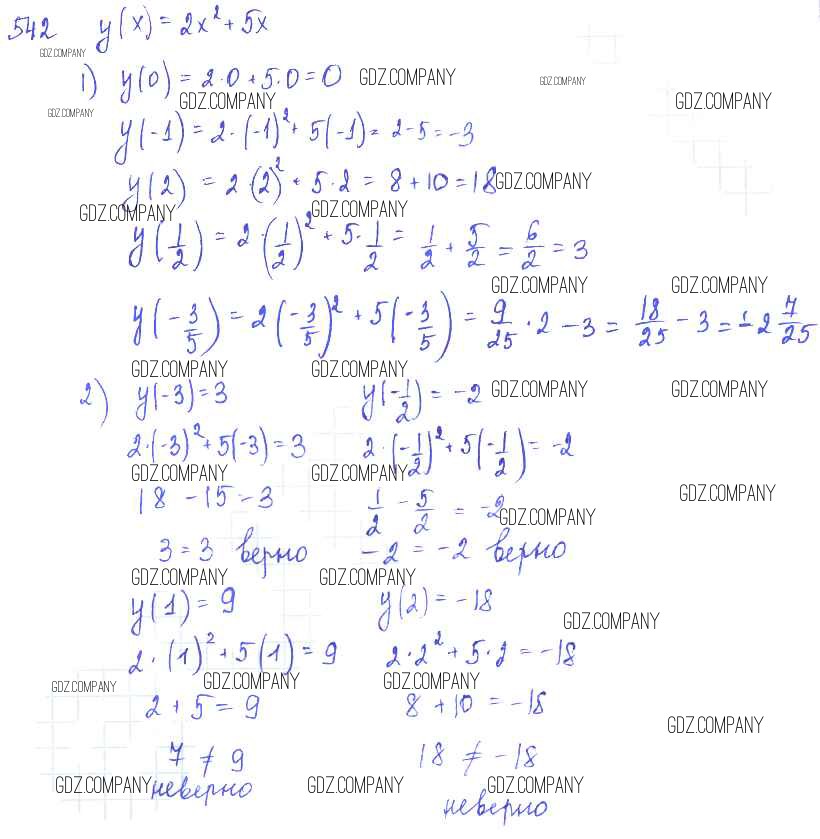 542 y(x) = 2x² + 5x
GDZ.COMPANY
1) y(0) = 2·0 + 5·0 = 0 GDZ.COMPANY GDZ.COMPANY
GDZ.COMPANY GDZ.COMPANY GDZ.COMPANY
y(-1) = 2·(-1)² + 5(-1) = 2-5 = -3
y(2) = 2·(2)² + 5·2 = 8 + 10 = 18 GDZ.COMPANY
GDZ.COMPANY GDZ.COMPANY
y(1/2) = 2·(1/2)² + 5·1/2 = 1/2 + 5/2 = 6/2 = 3
GDZ.COMPANY GDZ.COMPANY
y(-3/5) = 2(-3/5)² + 5(-3/5) = 9/25·2 - 3 = 18/25 - 3 = -2 7/25
GDZ.COMPANY GDZ.COMPANY
2) y(-3) = 3 y(-1/2) = -2 GDZ.COMPANY GDZ.COMPANY
2·(-3)² + 5(-3) = 3 2·(-1/2)² + 5(-1/2) = -2
GDZ.COMPANY GDZ.COMPANY
18 - 15 - 3 1/2 - 5/2 = -2 GDZ.COMPANY
GDZ.COMPANY
3 = 3 верно -2 = -2 верно
GDZ.COMPANY GDZ.COMPANY
y(1) = 9 y(2) = -18
GDZ.COMPANY
2·(1)² + 5(1) = 9 2·2² + 5·2 = -18
GDZ.COMPANY GDZ.COMPANY GDZ.COMPANY
2 + 5 = 9 8 + 10 = -18
GDZ.COMPANY
7 ≠ 9 18 ≠ -18
GDZ.COMPANY неверно GDZ.COMPANY GDZ.COMPANY
неверно